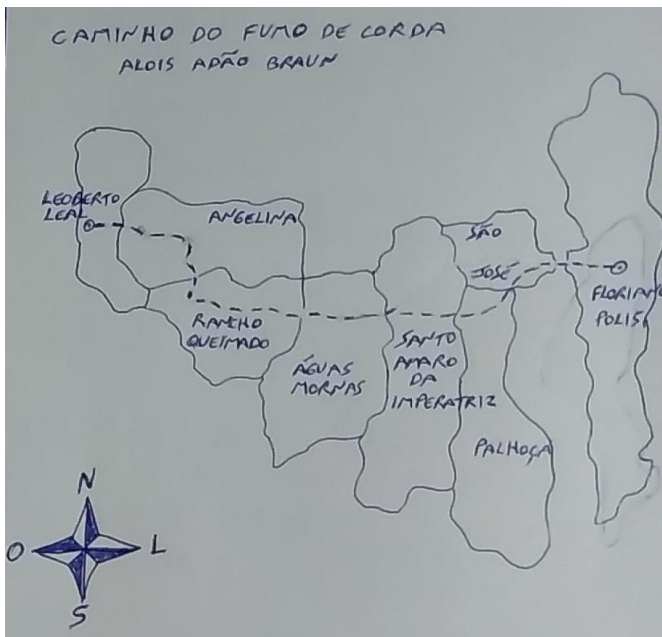 CAMINHO DO FUMO DE CORDA
ALOIS ADÃO BRAUN
LEOBERTO
LEAL
ANGELINA
SÃO
JOSÉ
FLORIANO
POLIS
RANCHO
QUEIMADO
ÁGUAS
MORNAS
SANTO
AMARO
DA
IMPERATRIZ
PALHOÇA
N
O
L
S